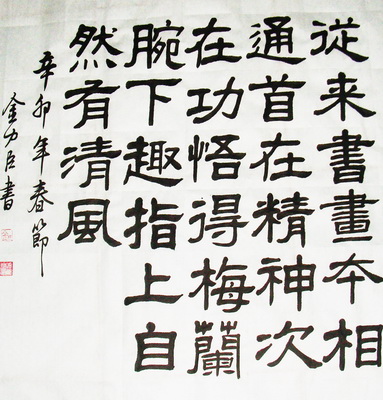 從来書畫夲相
通首在精神次
在功悟得梅蘭
腕下趣指上自
然有清風
辛卯年春節
金力臣書